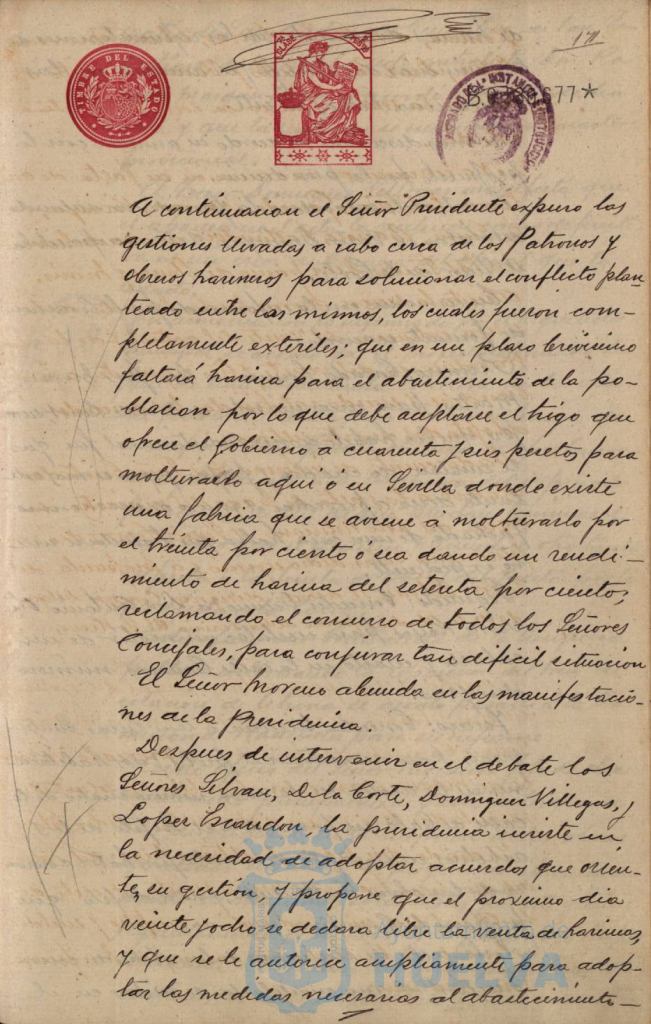 171
TIMBRE DEL ESTADO
677*
A continuacion el Señor Presidente expuso las
gestiones llevadas a cabo cerca de los Patronos y
obreros harineros para solucionar el conflicto plan-
teado entre las mismos, los cuales fueron com-
pletamente exteriles; que en un plazo brevisimo
faltará harina para el abastecimiento de la po-
blacion por lo que debe aceptarse el trigo que
ofrece el Gobierno á cuarenta y seis pesetas para
molturarlo aqui ó en Sevilla donde existe
una fabrica que se aviene á molturarlo por
el treinta por ciento ó sea dando un rendi-
miento de harina del setenta por ciento;
reclamando el concurso de todos los Señores
Concejales, para conjurar tan dificil situacion
El Señor Moreno abunda en las manifestacio-
nes de la Presidencia.
Despues de intervenir en el debate los
Señores Silvan, De la Corte, Dominguez Villegas, y
Lopez Escandon, la presidencia insiste en
la necesidad de adoptar acuerdos que orien-
ten su gestión, y propone que el proximo dia
veinte y ocho se declara libre la venta de harinas,
y que se le autorice ampliamente para adop-
tar las medidas necesarias al abastecimiento-
HUELVA